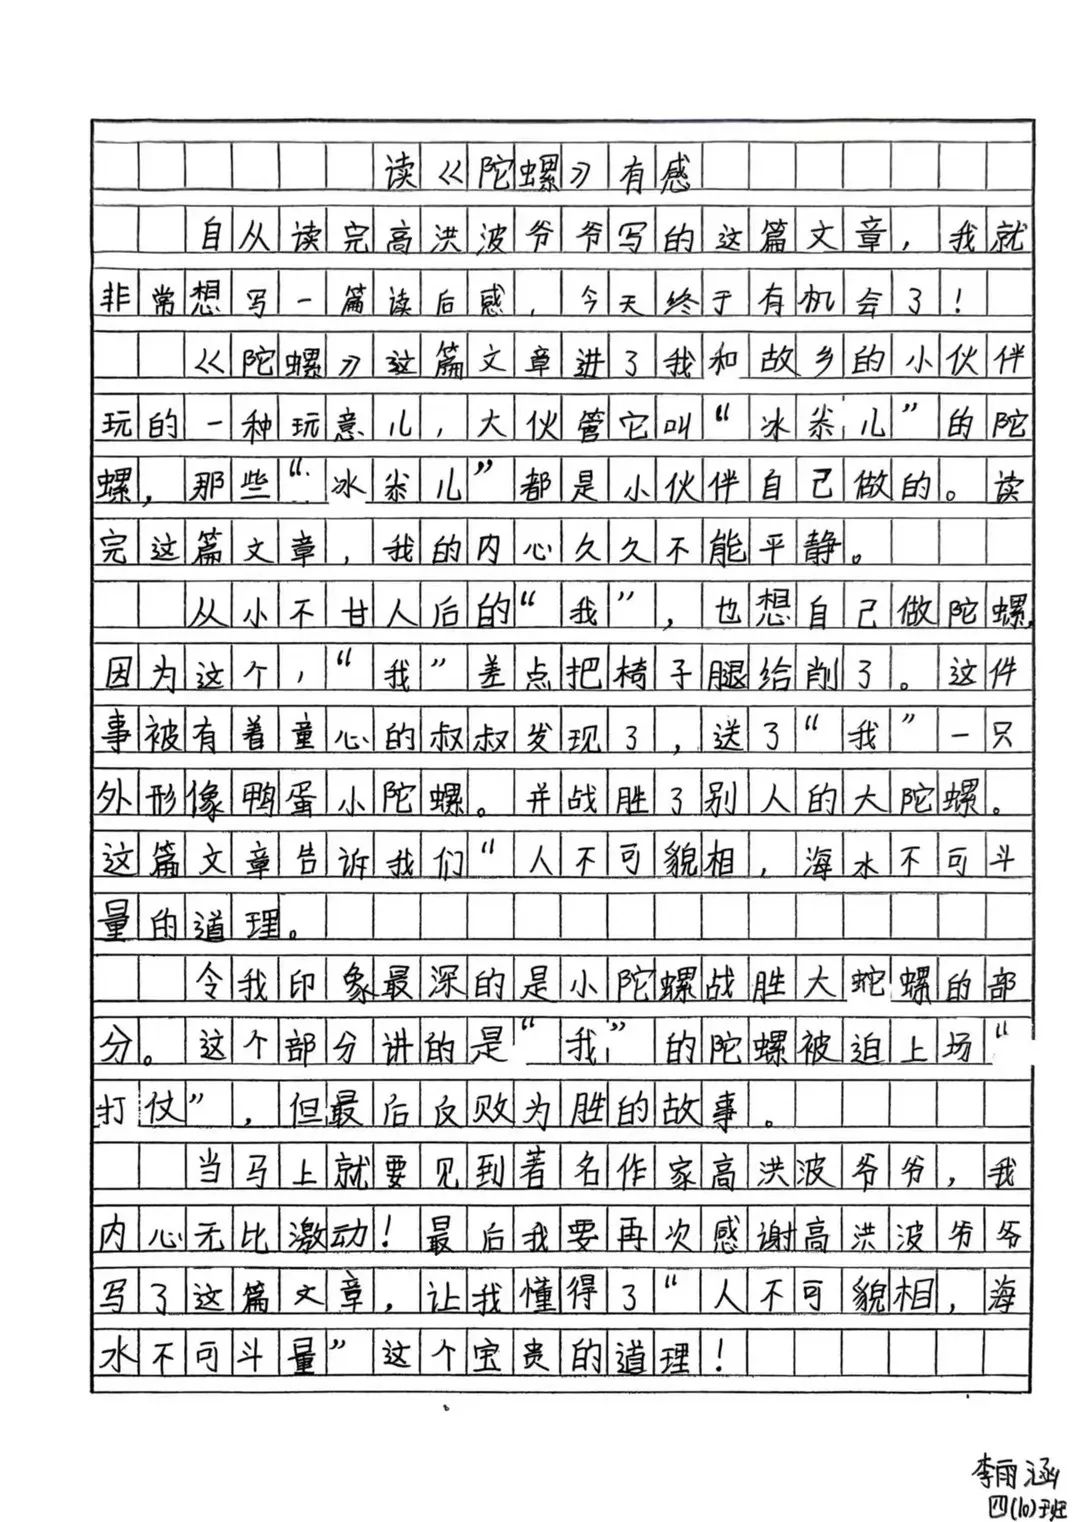 读《陀螺》有感
自从读完高洪波爷爷写的这篇文章，我就
非常想写一篇读后感，今天终于有机会了！
《陀螺》这篇文章进了我和故乡的小伙伴
玩的一种玩意儿，大伙管它叫“冰尜儿”的陀
螺，那些“冰尜儿”都是小伙伴自己做的。读
完这篇文章，我的内心久久不能平静。
从小不甘人后的“我”，也想自己做陀螺，
因为这个，“我”差点把椅子腿给削了。这件
事被有着童心的叔叔发现了，送了“我”一只
外形像鸭蛋小陀螺。并战胜了别人的大陀螺。
这篇文章告诉我们“人不可貌相，海水不可斗
量的道理。
令我印象最深的是小陀螺战胜大蛇螺的部
分。这个部分讲的是“我”的陀螺被迫上场“
打仗”，但最后反败为胜的故事。
当马上就要见到著名作家高洪波爷爷，我
内心无比激动！最后我要再次感谢高洪波爷爷
写了这篇文章，让我懂得了“人不可貌相，海
水不可斗量”这个宝贵的道理！
李雨涵
四(10)班